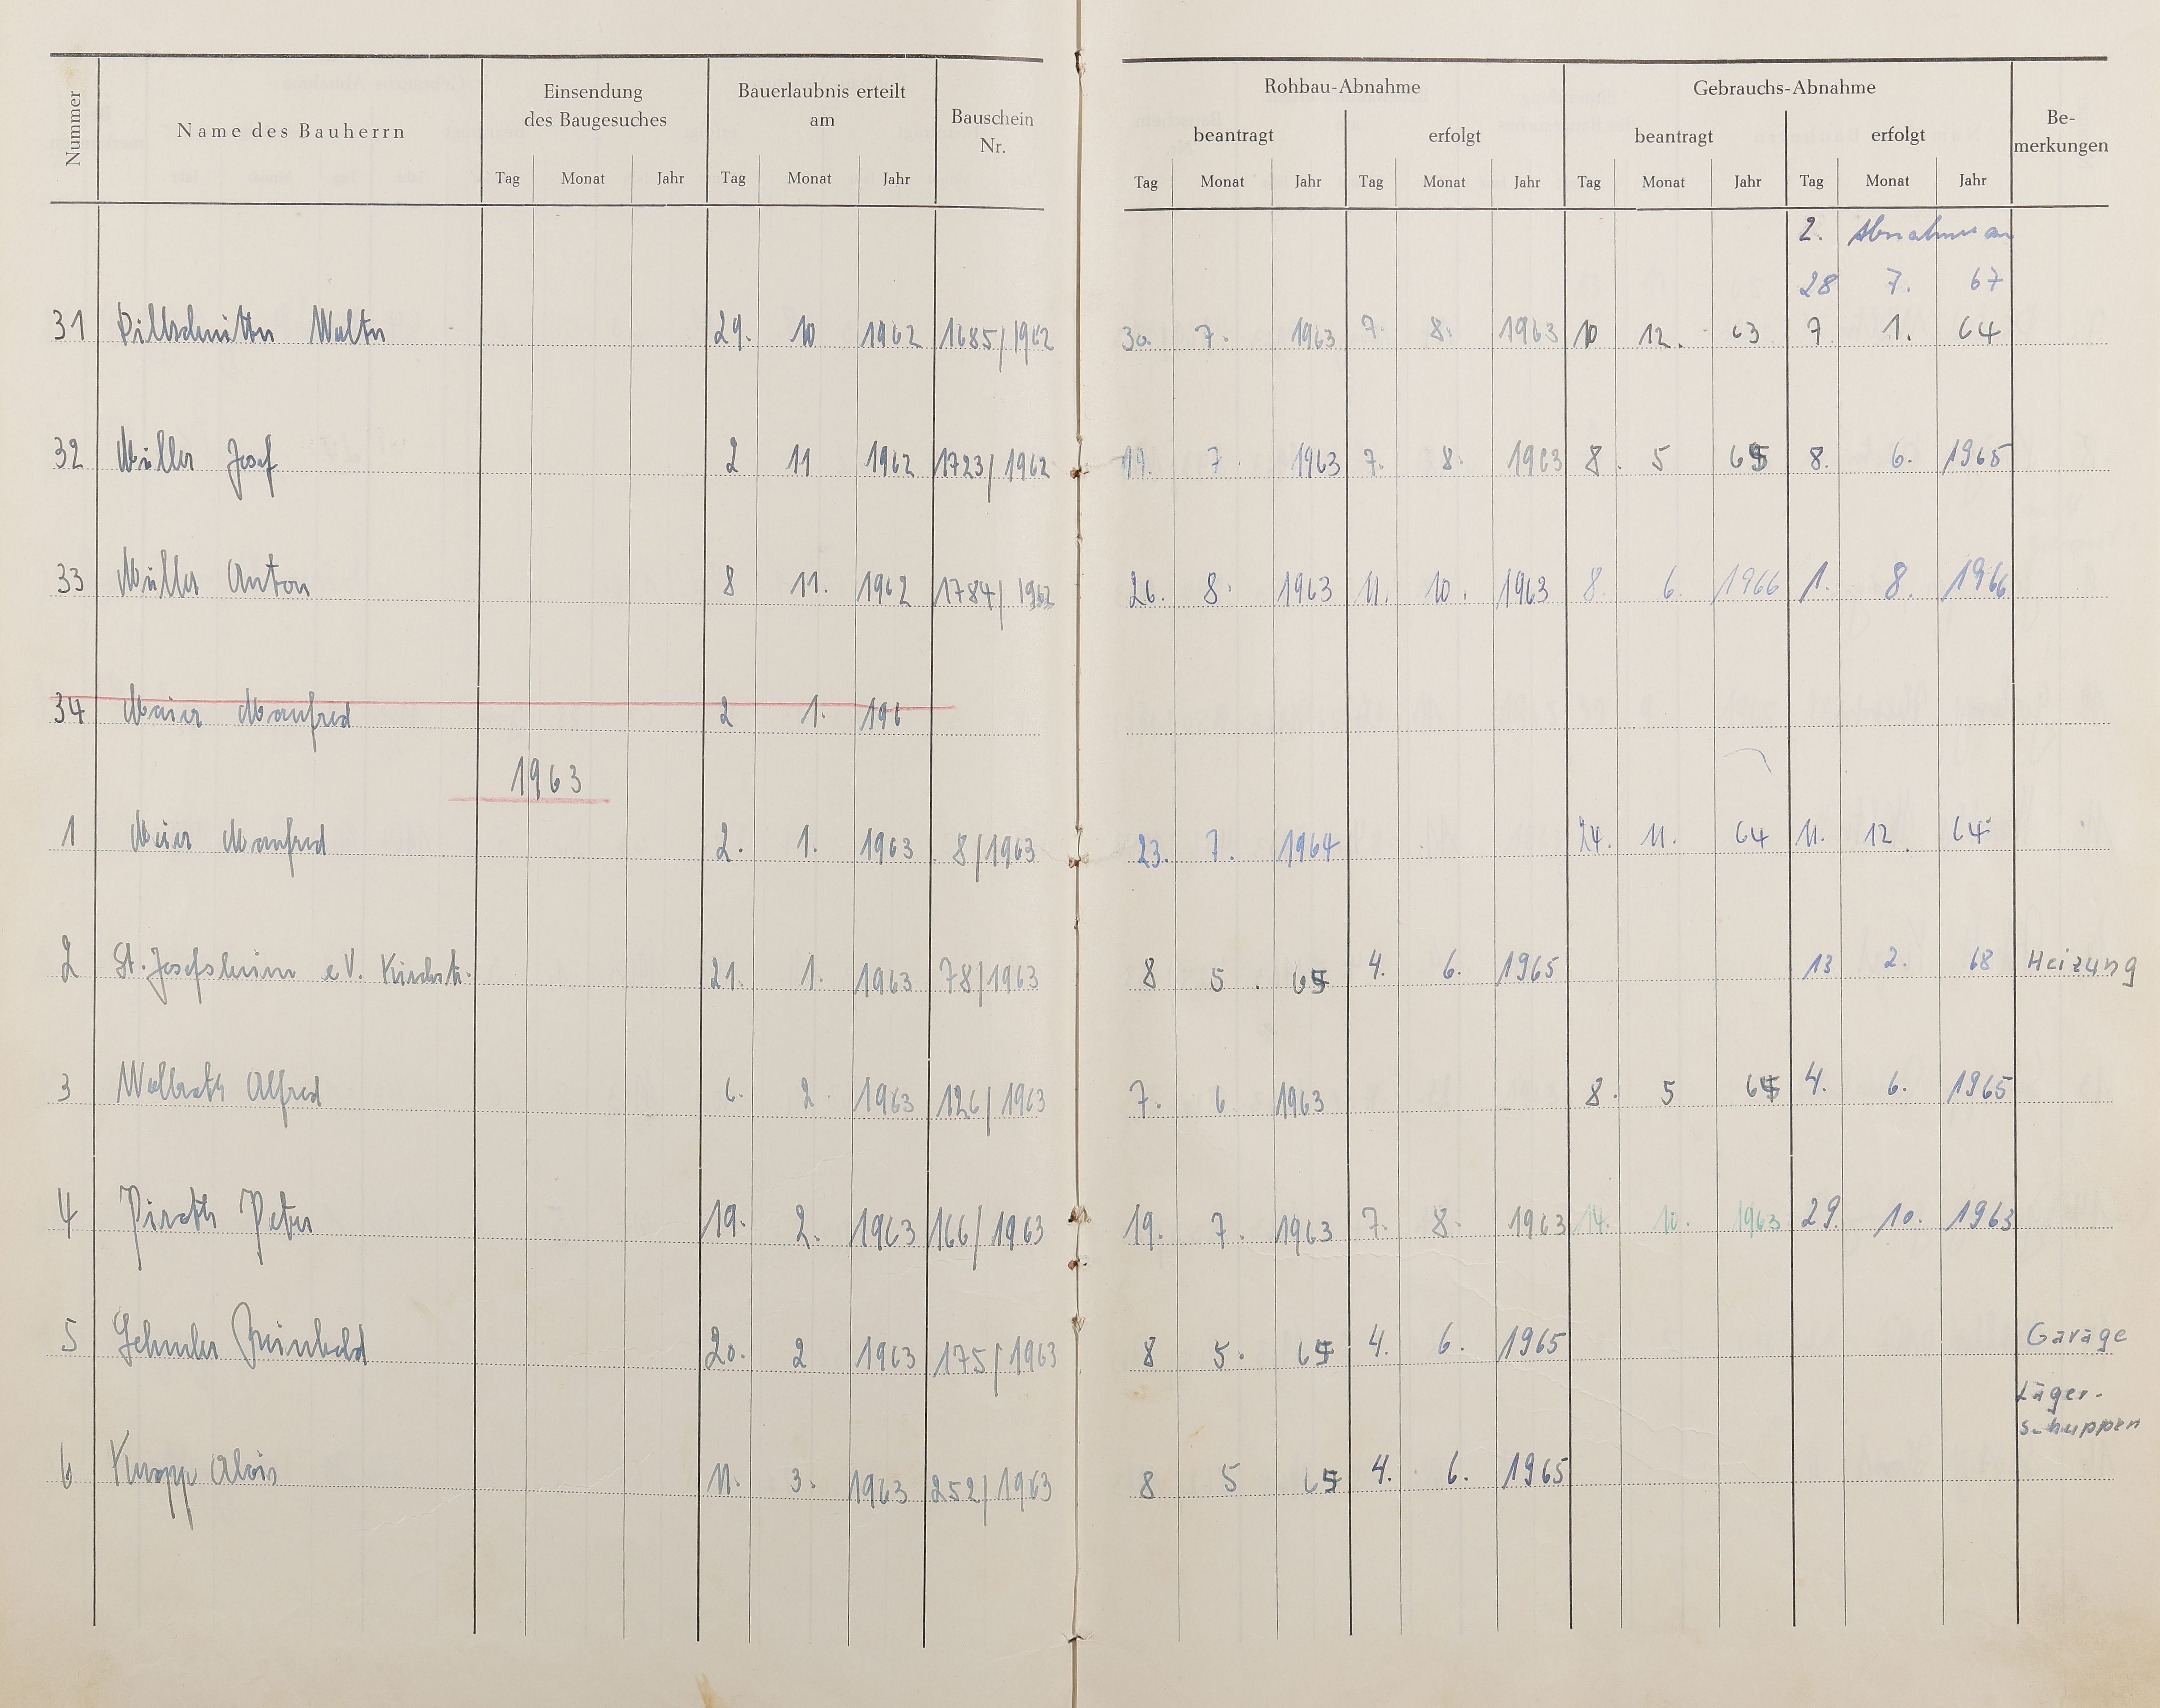 Nummer Name des Bauherrn Einsendung des Baugesuches Bauerlaubnis erteilt am Bauschein Nr. Rohbau-Abnahme Gebrauchs-Abnahme Be-merkungen
beantragt erfolgt beantragt erfolgt
Tag Monat Jahr Tag Monat Jahr Tag Monat Jahr Tag Monat Jahr Tag Monat Jahr Tag Monat Jahr
2. Abnahme am
28 7. 67
31 29. 10 1962 1685/1962 30. 7. 1963 7. 8. 1963 10 12. 63 7 1. 64
32 Müller Josef 2 11 1962 1723/1962 19. 7. 1963 7. 8. 1963 8. 5 65 8. 6. 1965
33 Müller Anton 8 11. 1962 1784/1962 26. 8. 1963 11. 10. 1963 8. 6. 1966 1. 8. 1966
34 Maier Manfred 2 1. 196
1963
1 Meier Manfred 2. 1. 1963 8/1963 23. 7. 1964 24. 11. 64 11. 12. 64
2 St. Josefsheim e.V. Kirchstr. 21. 1. 1963 78/1963 8 5. 65 4. 6. 1965 13 2. 68 Heizung
3 Wollrath Alfred 6. 2. 1963 126/1963 7. 6 1963 8. 5 65 4. 6. 1965
4 Pirath Peter 19. 2. 1963 166/1963 19. 7. 1963 7. 8. 1963 14. 10. 1963 29. 10. 1963
5 Reinhold 20. 2 1963 175/1963 8 5. 65 4. 6. 1965 Garage
Lager-
schuppen
6 Knopp Alois 11. 3. 1963 252/1963 8 5 65 4. 6. 1965